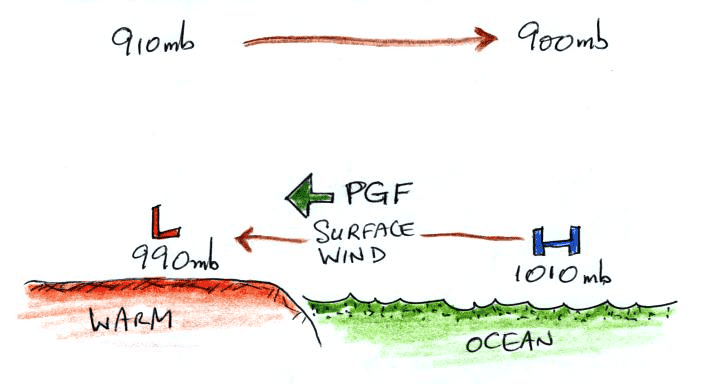 910mb 900mb
PGF
L SURFACE H
WIND
990mb 1010mb
WARM
OCEAN